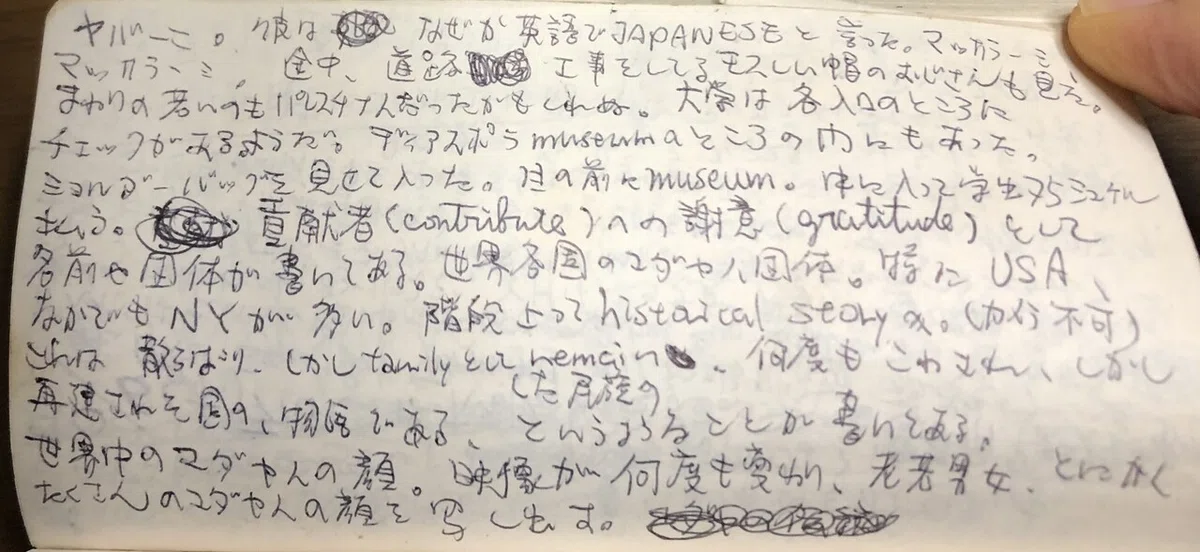 ヤバーニ。彼は なぜか英語でJAPANESEと言った。マッカラーニ
マッカラーニ。途中、道路 工事をしてる王スしい帽のおじさんも見え。
まわりの若いのもパレスチナ人だったかもしれぬ。大学は各入口のところに
チェックがあるようだ。ディアスポラmuseumのところの門にもあった。
ショルダーバッグを見せて入った。目の前にmuseum。中に入って学生
という。 貢献者(contribute)への謝意(gratitude)として
名前や団体が書いてある。世界各国のユダヤ人団体。特にUSA、
なかでもNYが多い。階段上ってhistorical storyの。(カメラ不可)
これは 散らばり、しかしfamilyとしてremain、何度もこわされ、しかし
した民族の
再建された国の、物語である、というようなことが書いてある。
世界中のユダヤ人の顔。映像が何度も変わり、老若男女、とにかく
たくさんのユダヤ人の顔を写し出す。